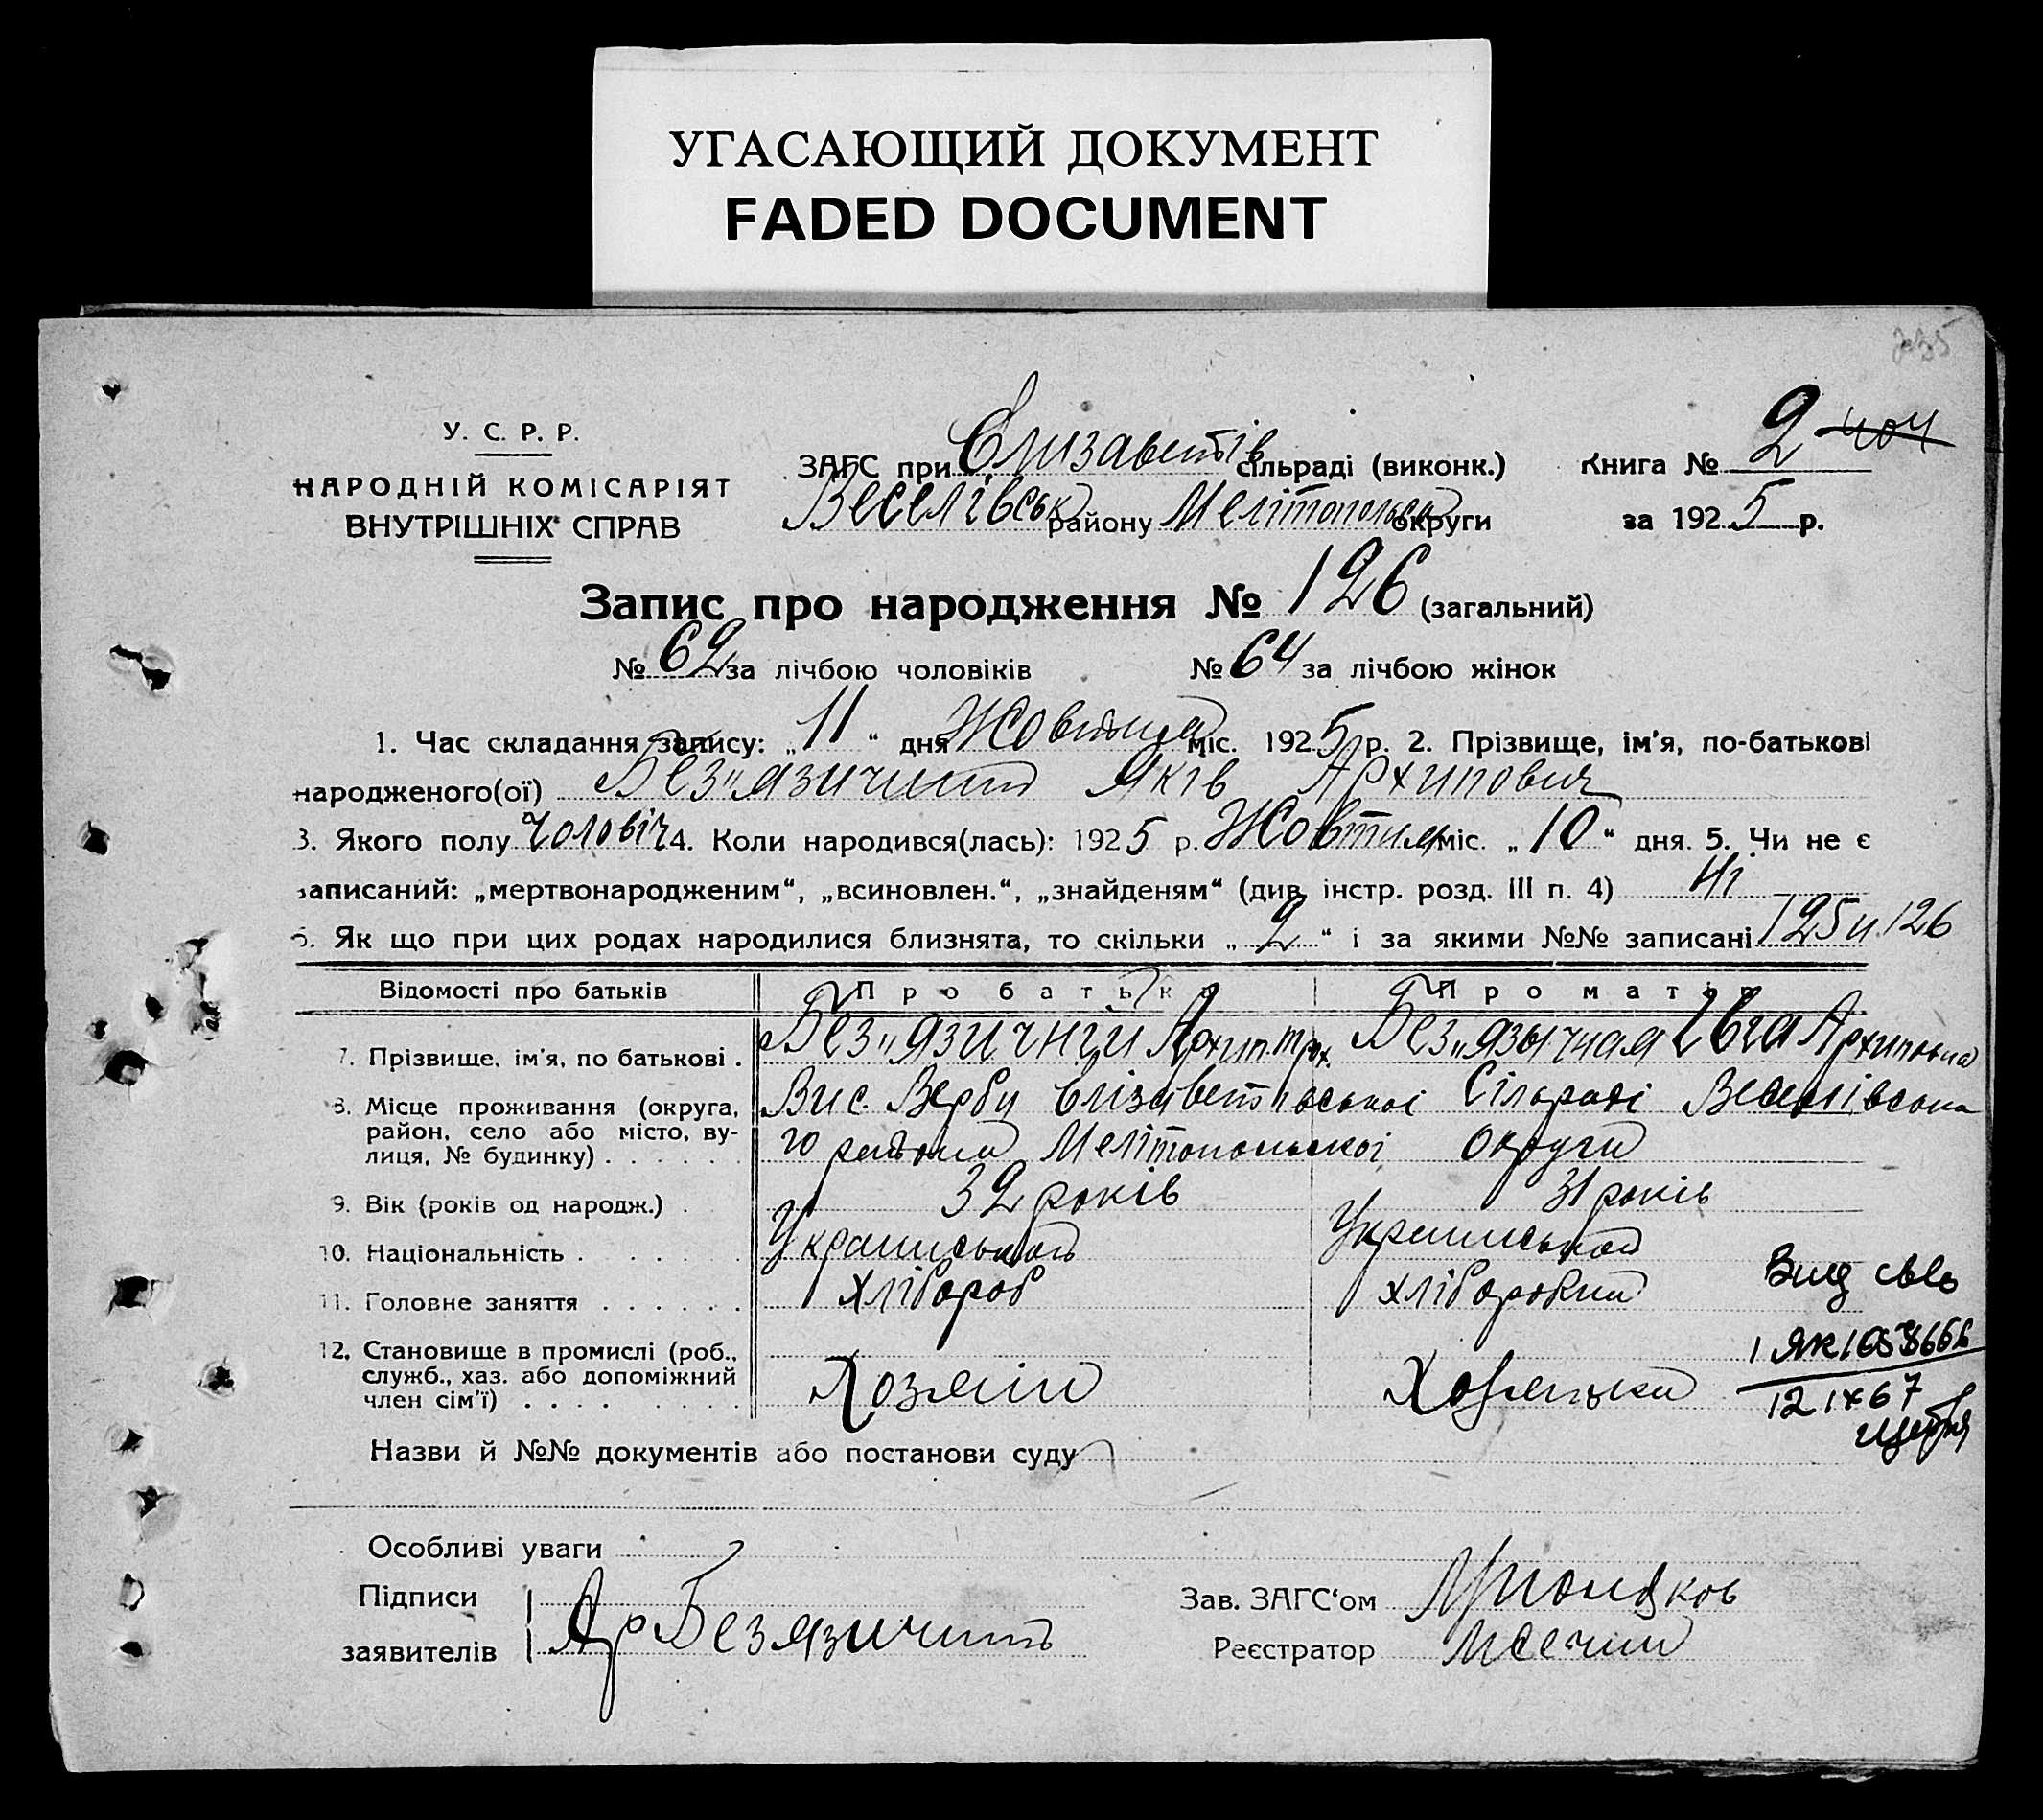 УГАСАЮЩИЙ ДОКУМЕНТ
FADED DOCUMENT
У. С. Р. Р.
НАРОДНІЙ КОМІСАРІЯТ
ВНУТРІШНІХ СПРАВ
ЗАГС при Єлизаветів сільраді (виконк.)
Веселівськ району Мелітопольськ округи
Книга № 2 404
за 1925 р.
Запис про народження № 126 (загальний)
№ 62 за лічбою чоловіків № 64 за лічбою жінок
1. Час складання запису: „11“ дня Жовтня міс. 1925 р. 2. Прізвище, ім'я, по-батькові
народженого(ої) Без"язичний Яків Архипович
3. Якого полу чоловіч 4. Коли народився(лась): 1925 р. Жовтня міс. „10“ дня. 5. Чи не є
записаний: „мертвонародженим“, „всиновлен.“, „знайденям“ (див. інстр. розд. III п. 4) Ні
6. Як що при цих родах народилися близнята, то скільки „2“ і за якими №№ записані 125 и 126
Відомості про батьків Про батька Про матір
7. Прізвище, ім'я, по батькові . Без"язичній Архип Без"язычная Архиповна
8. Місце проживання (округа, район, село або місто, вулиця, № будинку) . . . . . . Вис. Верби Єлізаветівської Сільраді Веселівсько
го района Мелітопольскої округи
9. Вік (років од народж.) . 32 років 31 років
10. Національність . . . . . . Український Українській
11. Головне заняття . . . . . . Хлібороб хліборобка
12. Становище в промислі (роб., служб., хаз. або допоміжний член сім'ї) . . . . . . . . Хозяїн Хозяйка
Вид св-во
1 ЯК
12 1х 67
Назви й №№ документів або постанови суду
Особливі уваги
Підписи
заявителів Ар Безязичний
Зав. ЗАГС'ом
Реєстратор